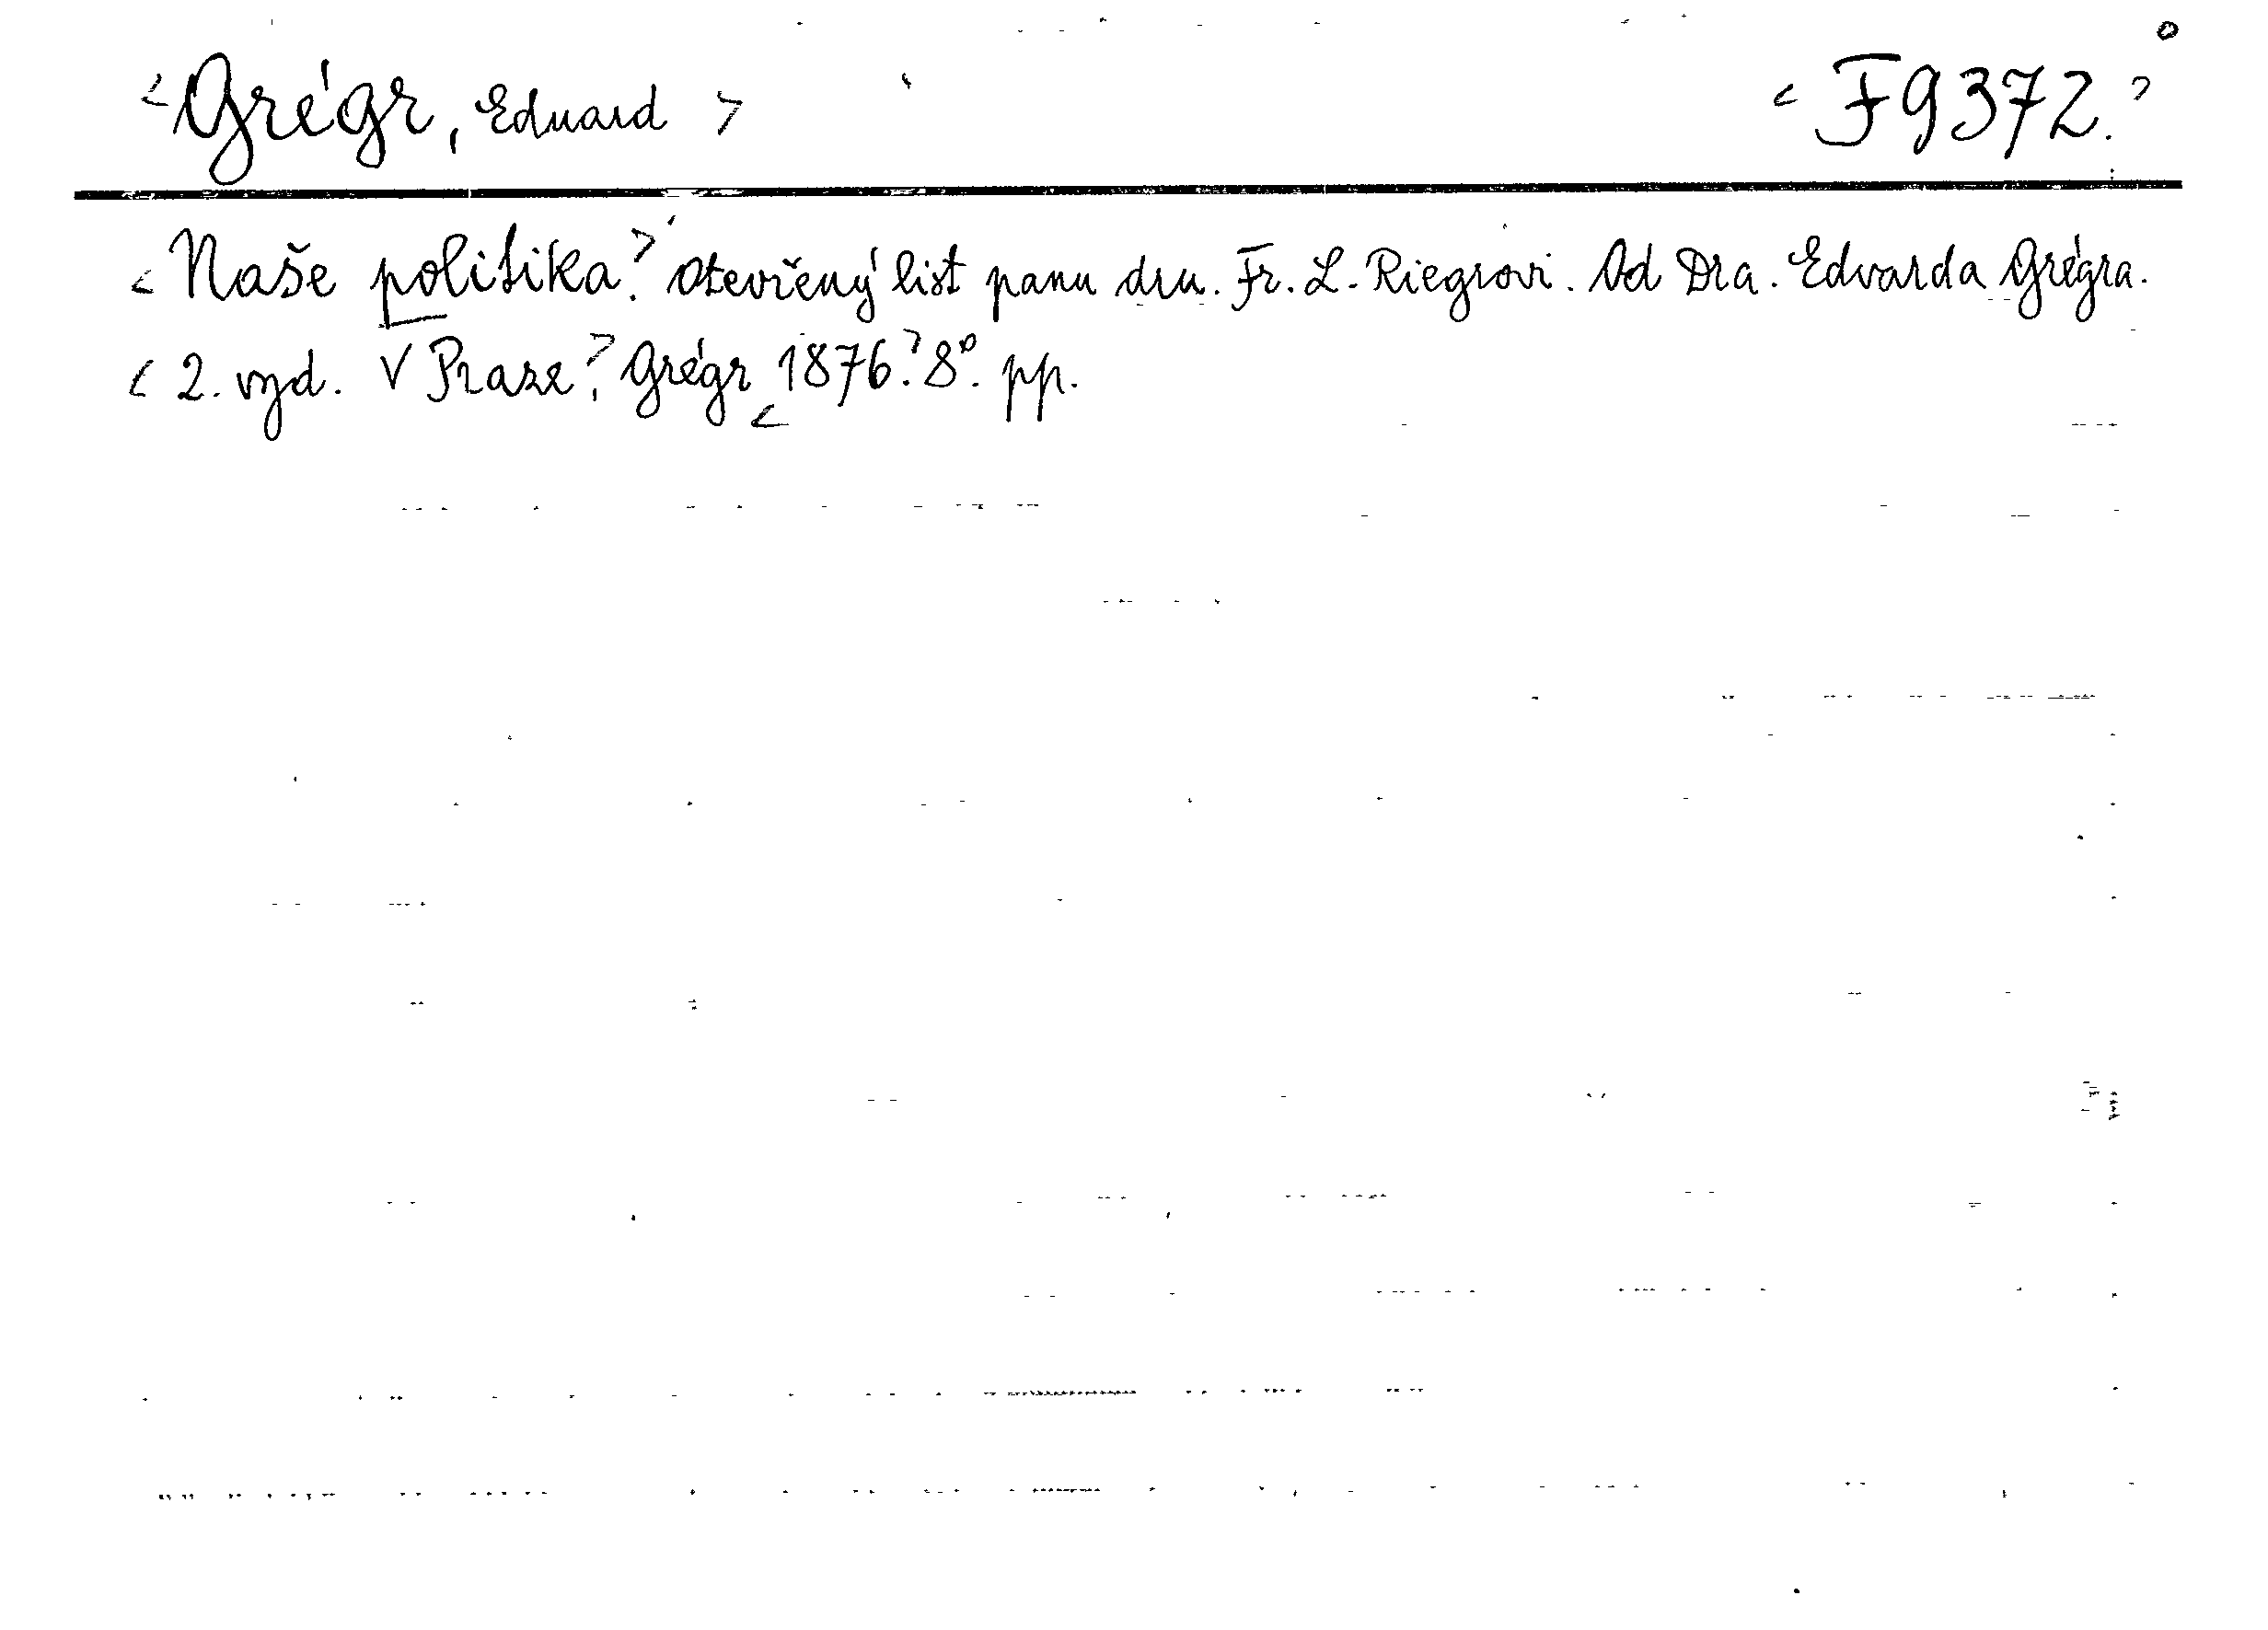 <Grégr, Eduard> <F 9372.>
<Naše politika.> Otevřený list panu dru. Fr. L. Riegrovi. Od Dra. Edvarda Grégra.
<2. vyd. V Praze>, Grégr <1876.> 8°. pp.